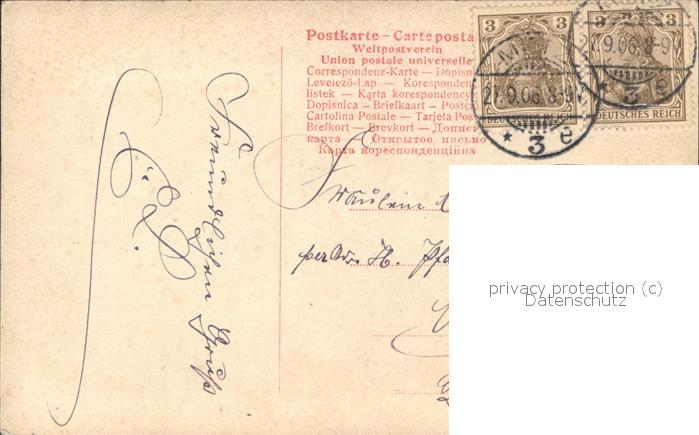 Postkarte – Carte posta
Weltpostverein
Union postale universelle
Correspondenz-Karte — Dopisn
Levelező-Lap — Koresponden
listek — Karta korespondency
Dopisnica — Briefkaart — Postc
Cartolina Postale — Tarjeta Pos
Brefkort — Brevkort — Дописн
карта — Открытое письмо
Карта кореспонденційна
3 3
3 3
27.9.06. 8-9V
27.9.06. 8-9V
* 3 e
3 e
DEUTSCHES REICH
DEUTSCHES REICH
Freundlichen Gruß
Fräulein
per Adr. H.
privacy protection (c)
Datenschutz